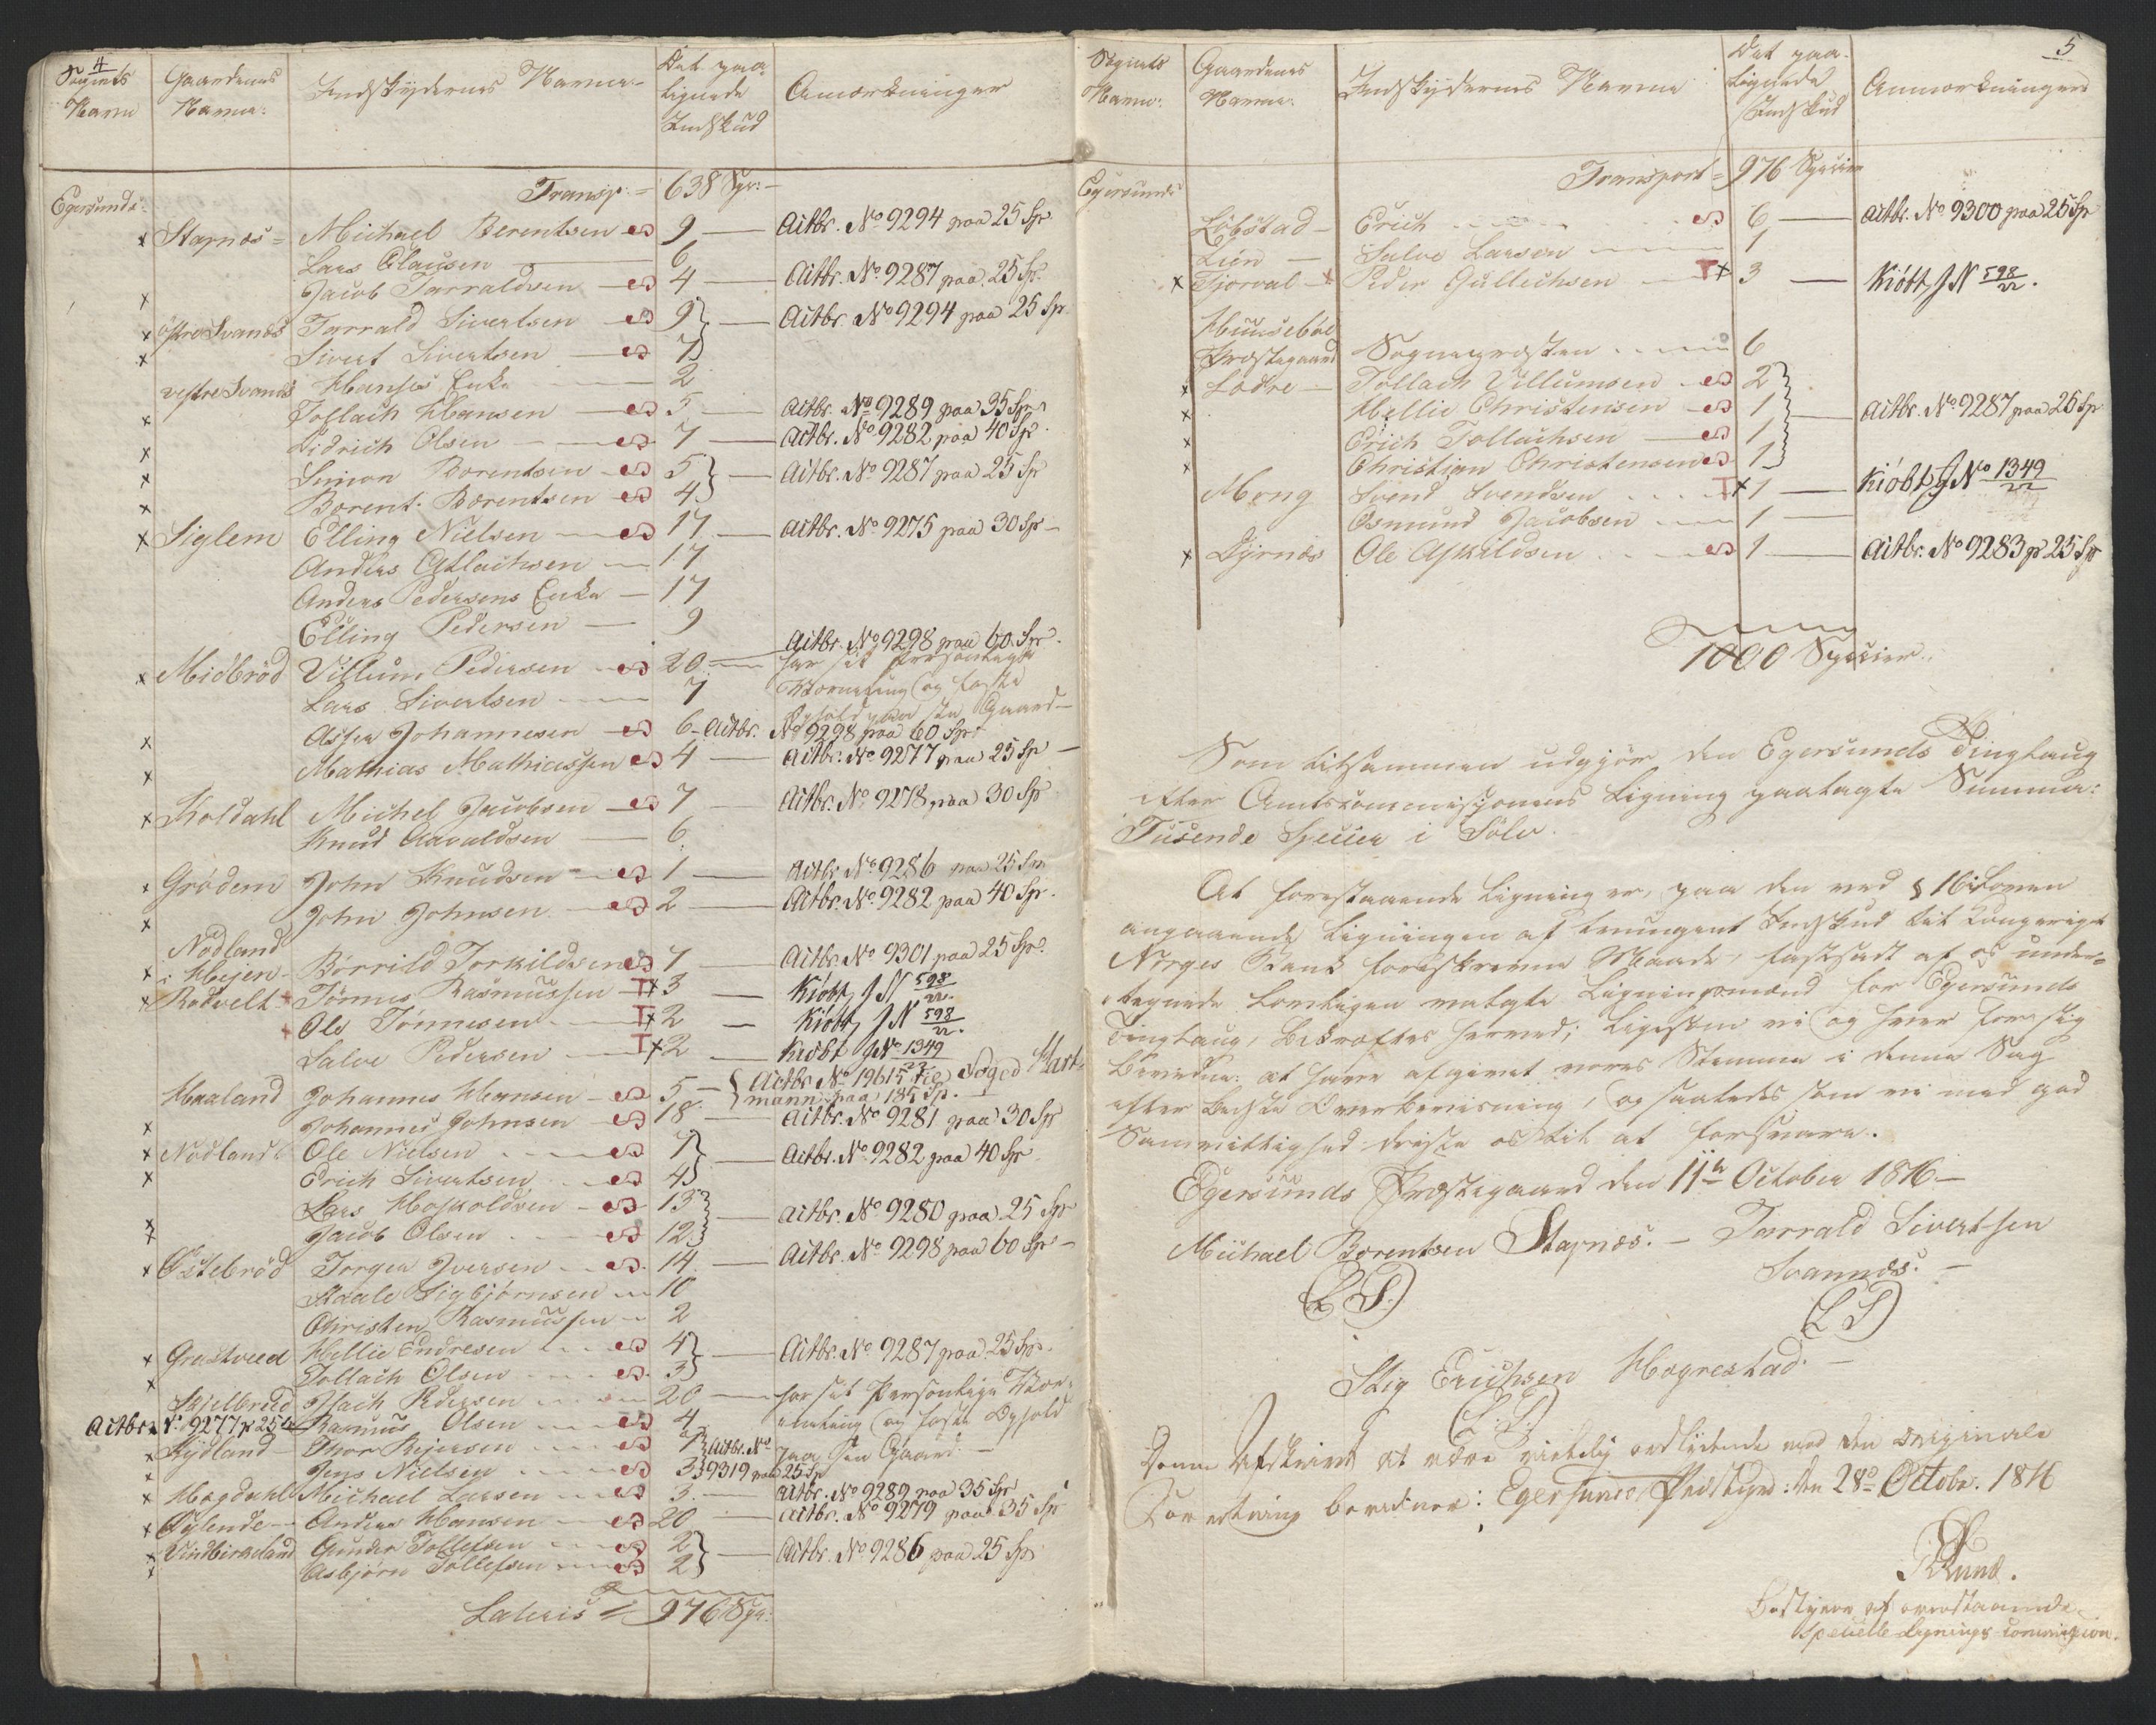 4
Sognets Navn
Gaardenes Navne:
Indskydernes Navne
Det paa-lignede Indskud
Anmerkninger
Egersunds
Transp: = 638 Spr: -
x Stapnæs = Michael Berentsen 9 — Actbr. No 9294 paa 25 Sp.
Lars Clausen 6
x Jacob Tarraldsen 4 — Actbr. No 9287 paa 25 Sp.
x østre Svanæs Tarrald Sivertsen 9 } — Actbr. No 9294 paa 25 Sp.
x Sivert Sivertsen 7 }
vestre Svanæs Hanses Enke 2
x Tollach Hansen 5 — Actbr. No 9289 paa 35 Sp.
x Didrich Olsen 7 — Actbr. No 9282 paa 40 Sp.
x Simon Berentsen 5 } — Actbr. No 9287 paa 25 Sp
x Berent Berentsen 4 }
x Siglem Elling Nielsen 17 — Actbr. No 9275 paa 30 Sp —
Anders Atlachsen 17
Anders Pedersens Enke 17
Elling Pedersen 9
Actbr. No 9298 paa 60 Spr.
x Midbröd Villum Pedersen 20 har sit personlige
Lars Sivertsen 7 Værneting og faste
Ophold paa sin Gaard —
x Asser Johannesen 6 - Actbr. No 9298 paa 60 Spr
x Mathias Mathiassen 4 — Actbr. No 9277 paa 25 Sp —
x Koldahl Michel Jacobsen 7 — Actbr. No 9278 paa 30 Sp
Knud Aavaldsen 6
x Grödem John Knudsen 1 — Actbr No 9286 paa 25 Sp
x John Johnsen 2 — Actbr. No 9282 paa 40 Sp.
Nödland
x i Hejen - Börrild Torkildsen 7 — Actbr. No 9301 paa 25 Sp.
x Rödvelt Tönnes Rasmussen T x 3 — Kiöbt J N 598/22.
Ole Tönnesen T x 2 — Kiöbt J N 598/22.
Salve Pedersen T x 2 — Kiöbt J No 1349/22
Haaland Johannes Hansen 5 - { Actbr. No 19615 til Foged Hart-
mann paa 185 Sp. —
x Johannes Johnsen 18 — Actbr. No 9281 paa 30 Sp
x Nödland Ole Nielsen 7 } — Actbr. No 9282 paa 40 Sp
x Erich Sivertsen 4 }
x Lars Hoskoldsen 13 } — Actbr. No 9280 paa 25 Sp
x Jacob Olsen 12 }
x Östebröd Jörgen Iversen 14 — Actbr. No 9298 paa 60 Sp —
Staale Sigbjörnsen 10
Christen Rasmussen 2
x Grastveed Hellie Endresen 4 } — Actbr. No 9287 paa 25 Sp.
x Tollach Olsen 3 }
Skjelbred Isach Pedersen 20 — har sit Personlige Vær-
Actbr. No 9277 p 25 Rasmus Olsen 4 neting og faste Ophold
x Rydland Thor Rejersen 7 } Actbr. No paa sin Gaard. —
x Jens Nielsen 3 } 9319 paa 25 Sp
x Hægdahl Michael Larsen 3 — Actbr. No 9289 paa 35 Sp
x Öylende Anders Hansen 20 — Actbr. No 9279 paa 35 Sp
x Vindbirkeland Gunder Tollefsen 2 } — Actbr. No 9286 paa 25 Sp
x Asbjörn Tollefsen 2 }
Lateris = 976 Spr:
5
Sognets Navn:
Gaardenes Navne:
Indskydernes Navne
Det paa-lignede Indskud
Anmerkninger
Egersunds
Transport = 976 Specier
Löbstad - Erich 6 — Actbr. No 9300 paa 25 Sp
Lien - Salve Larsen 1
x Tjorval - x Peder Gullichsen T x 3 — Kiöbt J N 598/22.
Huuseböe
Præstegaard Sognepræsten 6
x Lædre - Tollach Villumsen 2 }
x Hellie Christensen 1 } — Actbr. No 9287 paa 25 Sp
x Erich Tollachsen 1 }
x Christian Christensen 1 }
Mong Svend Svendsen T x 1 — Kiöbt J No 1349/22
Osmund Jacobsen 1 —
x Dyrnæs Ole Askildsen 1 — Actbr. No 9283 p 25 Sp
1000 Specier.
Som tilsammen udgjör den Egersunds Tinglaug
efter Amtscommissionens Ligning paalagte Summa:
Tusende Specier i Sölv.
At forestaaende Ligning er, paa den ved § 16 i Loven
angaaende Ligningen af tvungent Indskud til Kongeriget
Norges Bank foreskrevne Maade, fastsadt af os under-
tegnede lovligen valgte Ligningsmænd for Egersunds
Tinglaug, bekræftes herved; ligesom vi og hver for sig
bevidne: at have afgivet vores Stemme i denne Sag
efter bedste Overbeviisning, og saaledes som vi med god
Samvittighed tröste os til at forsvare.
Egersunds Præstegaard den 11te October 1816 —
Michael Berentsen Stapnæs. — Tarrald Sivertsen
Svannæs. —
(L S.) (L S)
Stig Erichsen Hægrestad. —
(L. S.)
Denne Afskrivt at være rigtig eenslydende med den originale
Forretning bevidner: Egersunds Præstegrd: den 28de Octobr. 1816
Bestyrer af ovenstaaende
specielle Lignings Commission.